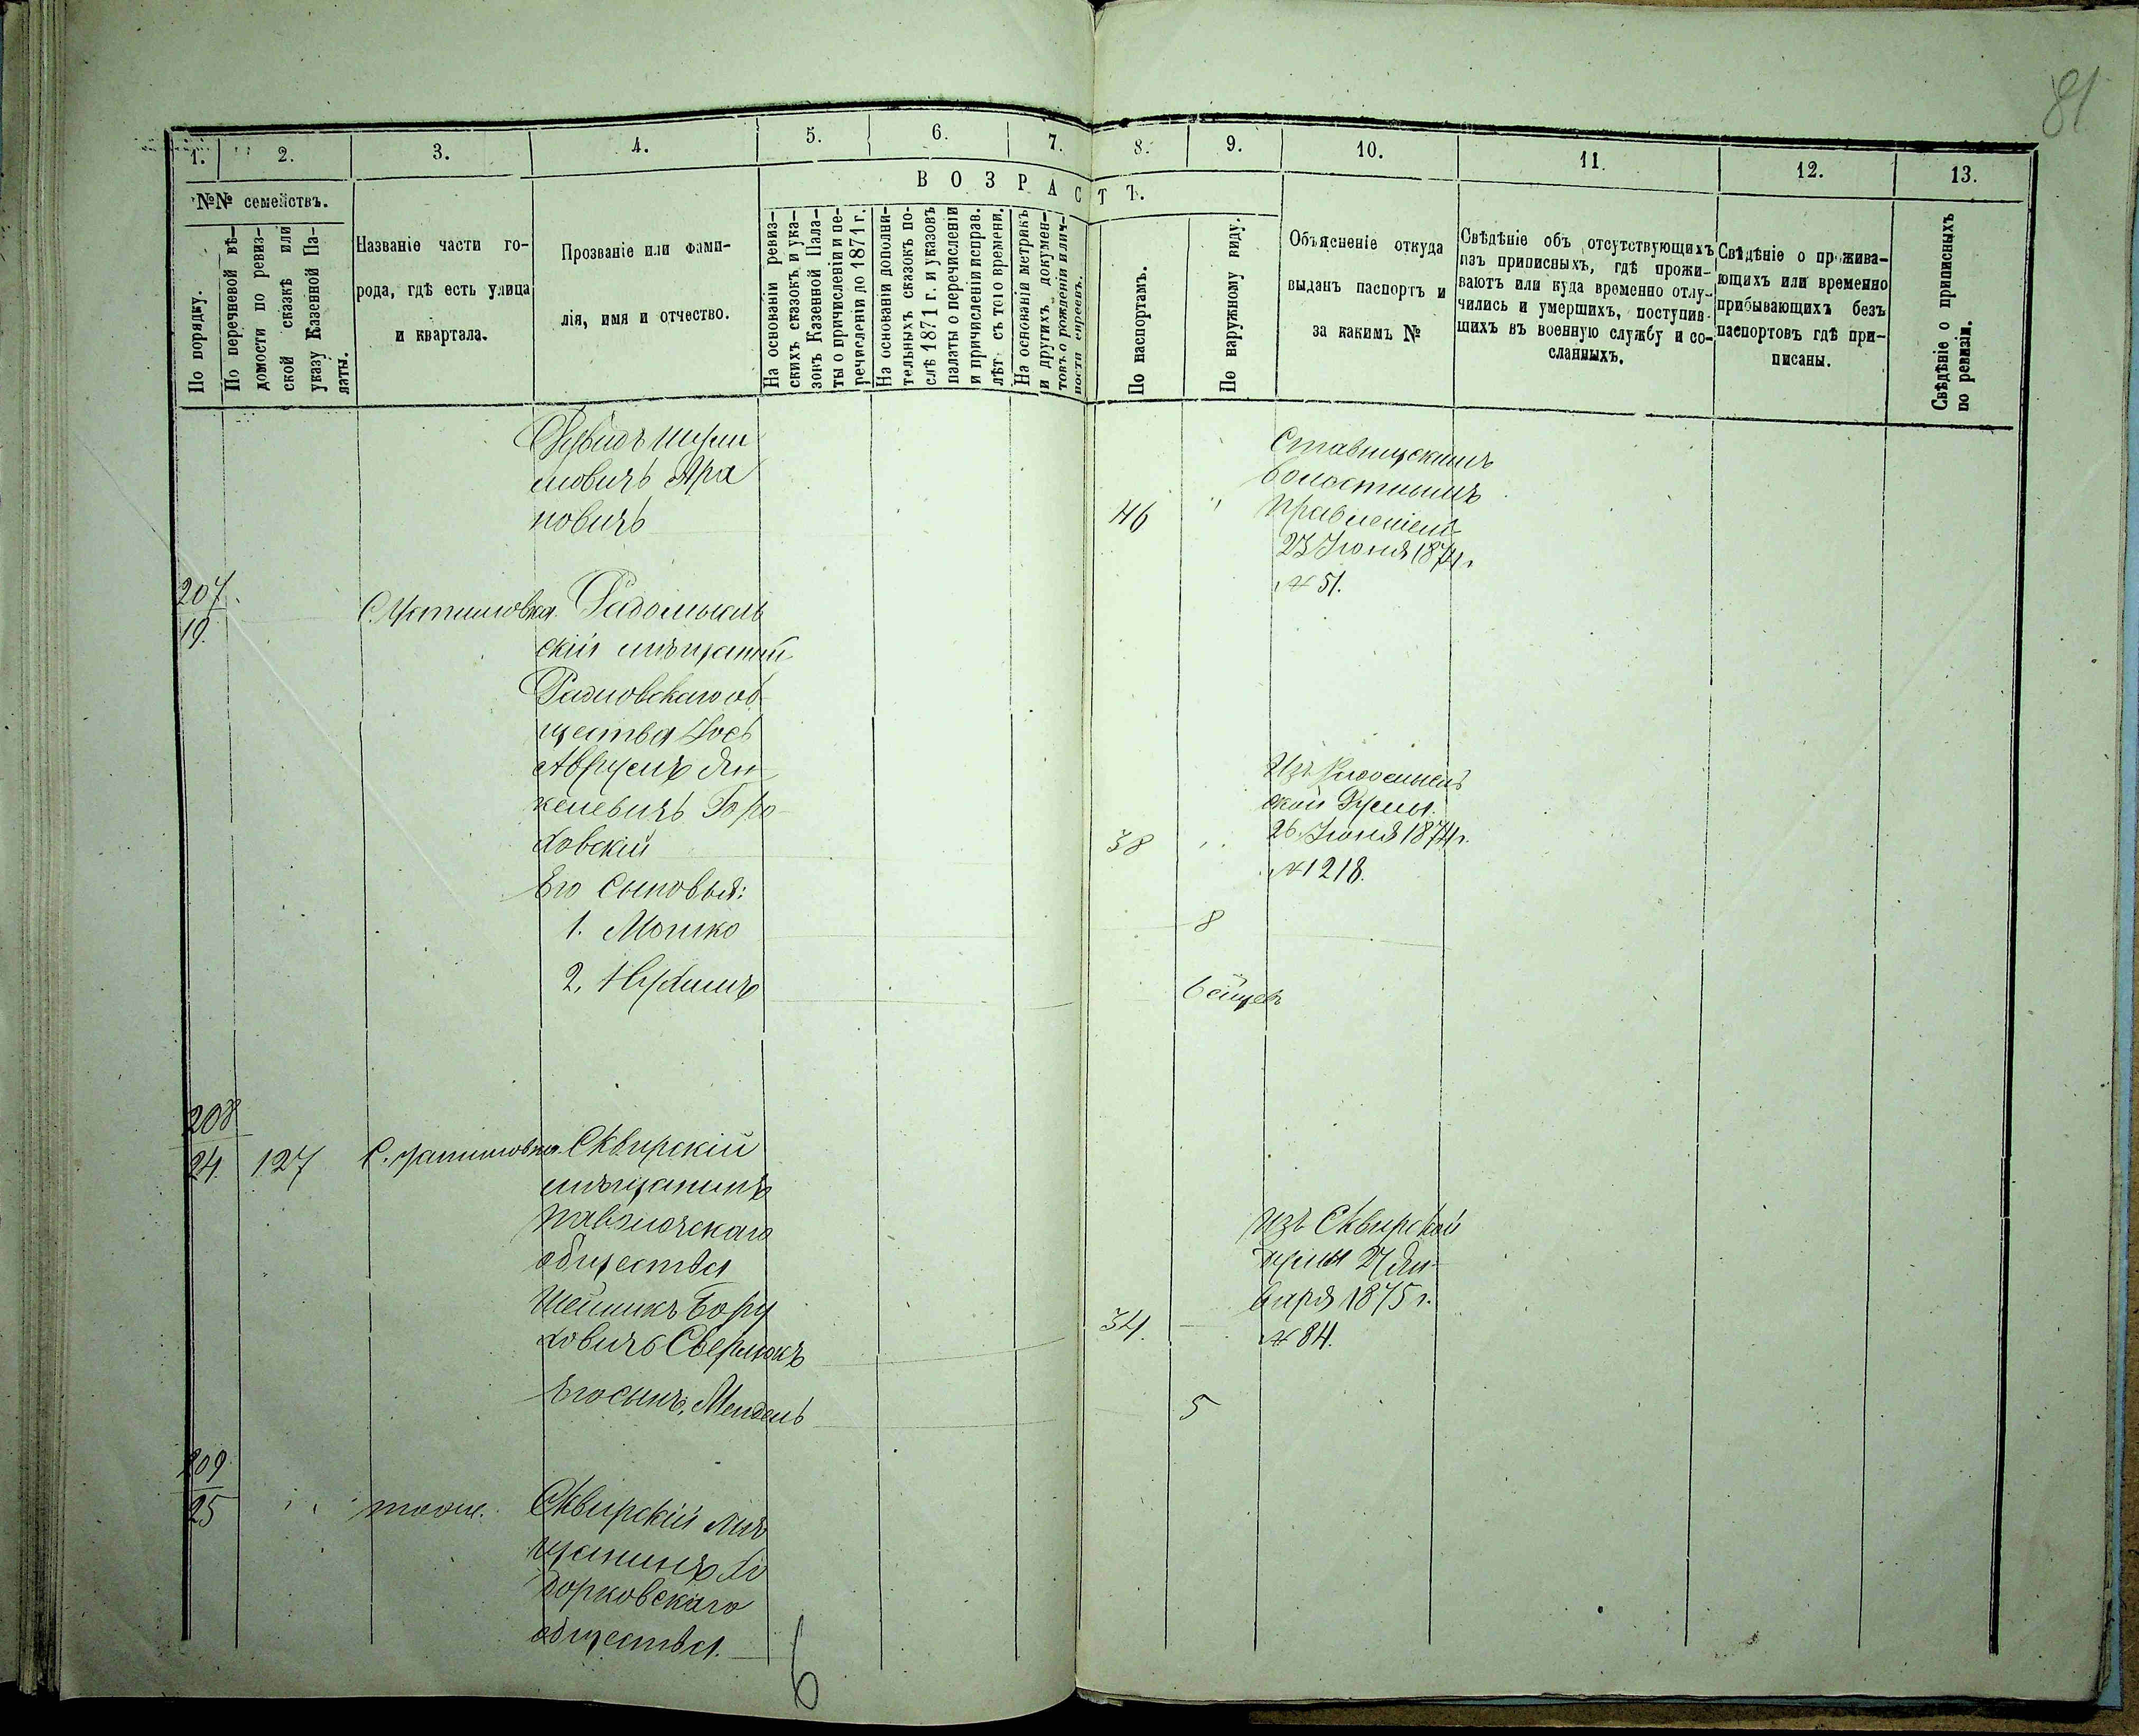 81
1. 2. 3. 4. 5. 6. 7. 8. 9. 10. 11. 12. 13.
№№ семействъ.
По порядку.
По перечневой вѣ-
домости по ревиз-
ской сказкѣ или
указу Казенной Па-
латы.
Названіе части го-
рода, гдѣ есть улица
и квартала.
Прозваніе или фами-
лія, имя и отчество.
ВОЗРАСТЪ.
На основаніи ревиз-
скихъ сказокъ и ука-
зовъ Казенной Пала-
ты о причисленіи и пе-
речисленіи до 1871 г.
На основаніи дополни-
тельныхъ сказокъ по-
слѣ 1871 г. и указовъ
палаты о перечисленіи
и причисленіи исправ.
лѣт съ того времени.
На основаніи метрикъ
и другихъ докумен-
товъ о рожденіи и лич-
ности евреевъ.
По паспортамъ.
По наружному виду.
Объясненіе откуда
выданъ паспортъ и
за какимъ №
Свѣдѣніе объ отсутствующихъ
изъ приписныхъ, гдѣ прожи-
ваютъ или куда временно отлу-
чились и умершихъ, поступив-
шихъ въ военную службу и со-
сланныхъ.
Свѣдѣніе о прожива-
ющихъ или временно
прибывающихъ безъ
паспортовъ гдѣ при-
писаны.
Свѣдѣніе о приписныхъ
по ревизіи.
новичъ
46
Ставищскимъ
волостнымъ
правленіемъ
23 Іюня 1874 г.
№ 51.
207
19.
Радомысль
скій мѣщанинъ
общества
Янкелевичъ
ховскій
38
Изъ Радомысль
ской Думы
26 Іюня 1874 г.
№ 1218.
Его сыновья:
1. Мошко
8
2. Нухимъ
208
24. 127
Сквирскій
мѣщанинъ
Паволочскаго
общества
Бору
ховичъ
34.
Изъ Сквирской
думы 27 Ян-
варя 1875 г.
№ 84.
Его сынъ, Мендель
5
209
25
тоже.
Сквирскій мѣ
щанинъ Хо
дорковскаго
общества.
6